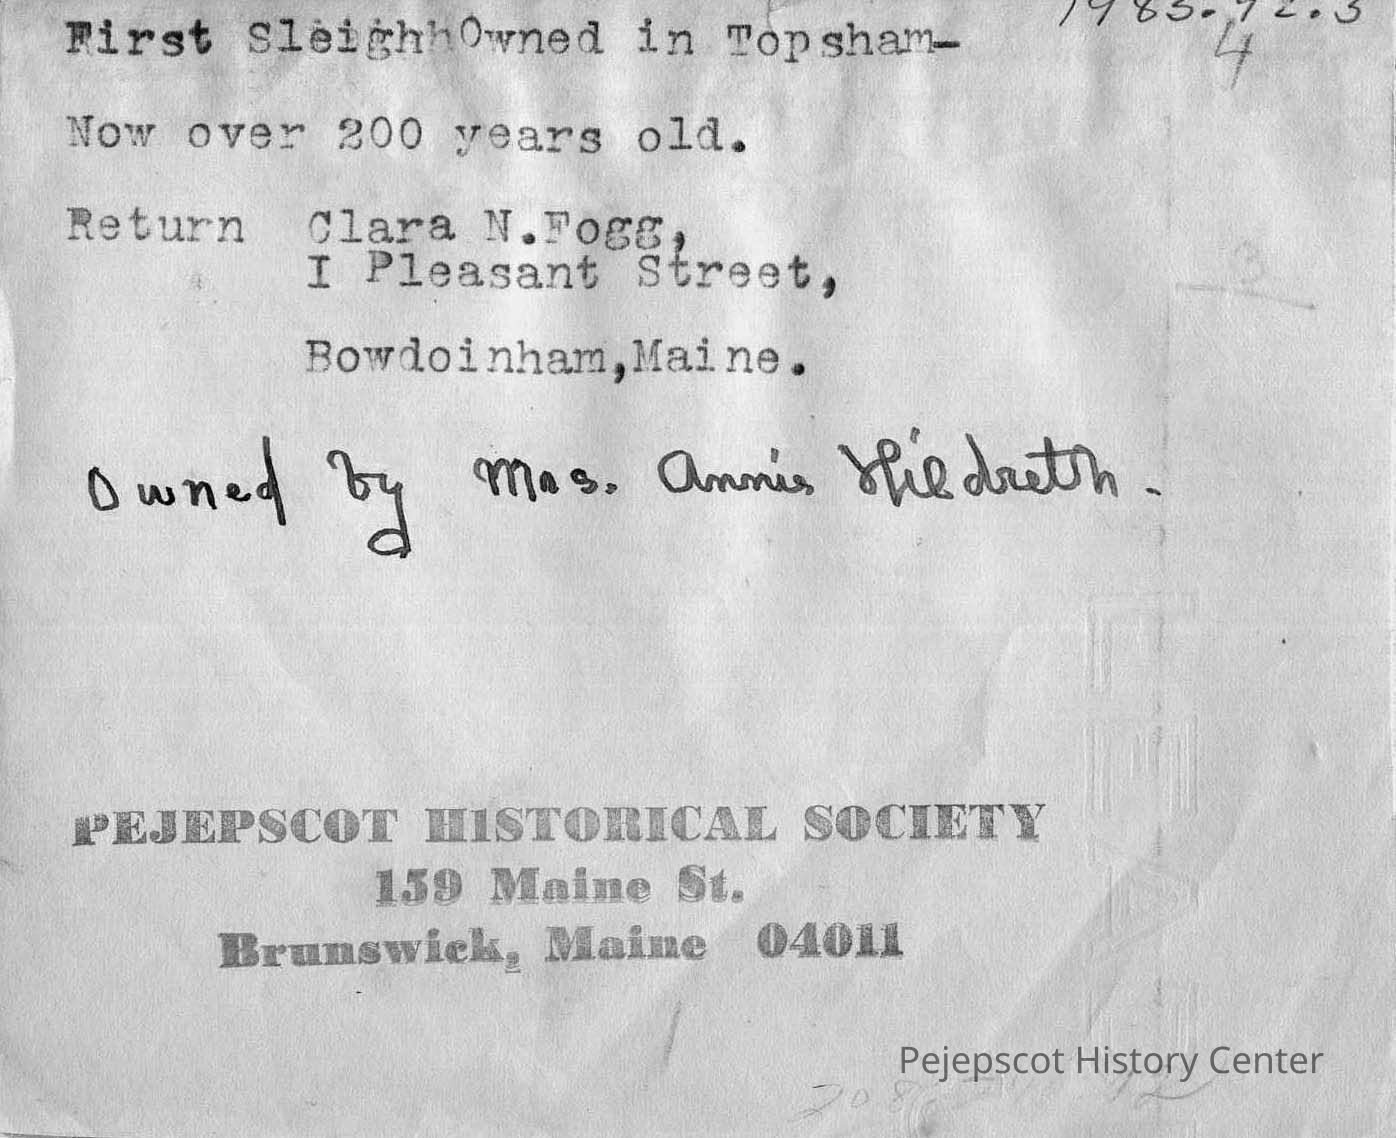 1983.92.3
4
First Sleigh Owned in Topsham-
Now over 200 years old.
Return Clara N.Fogg,
I Pleasant Street,
3
Bowdoinham,Maine.
Owned by Mrs. Annie Hildreth.
PEJEPSCOT HISTORICAL SOCIETY
159 Maine St.
Brunswick, Maine 04011
Pejepscot History Center